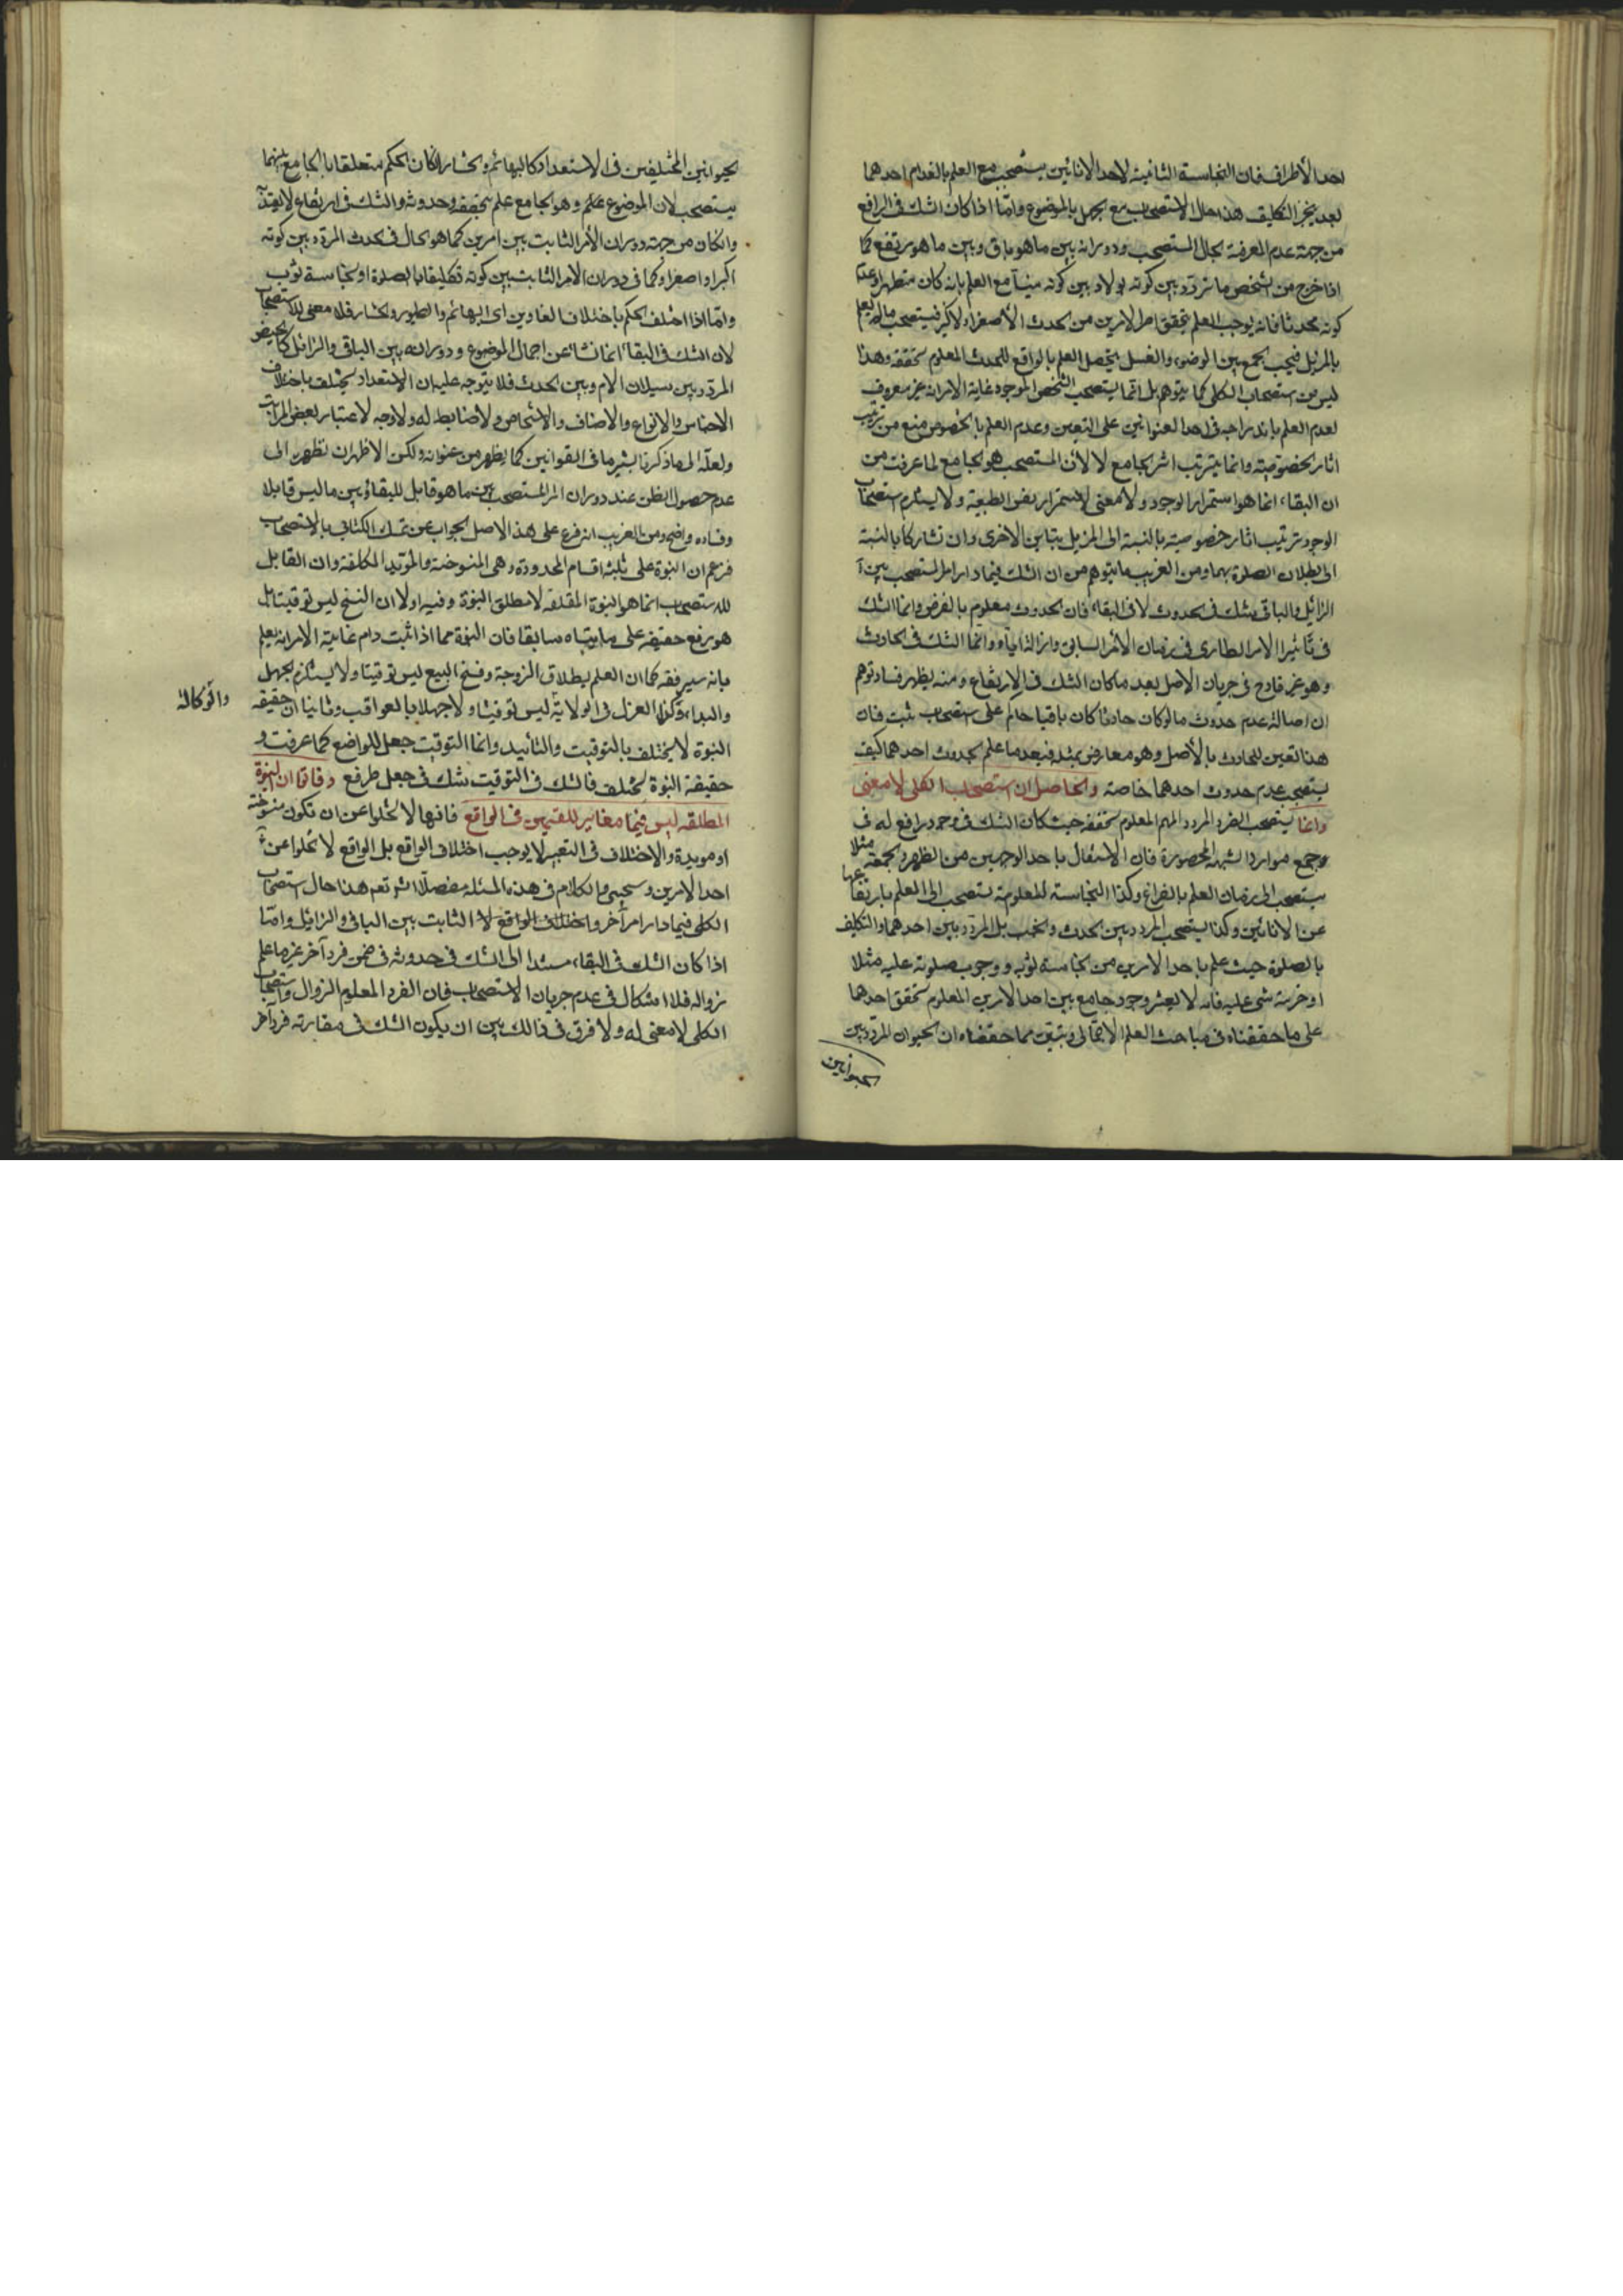 احد الأطراف فان النجاسة الثانية لاحد الانائين يستصحب مع العلم بانعدام احدهما
بعد تنجز التكليف هذا حال الاستصحاب مع الجهل بالموضوع وامّا اذا كان الشك فى الرافع
من جهة عدم المعرفة بحال المستصحب ودورانه بين ما هو باق وبين ما هو يرتفع كما
اذا خرج من الشخص ما تردّد بين كونه بولا وبين كونه منيّا مع العلم بانه كان متطهرا وعدم
كونه محدثا فانه يوجب العلم بتحقق احد الامرين من الحدث الأصغر او الاكبر فيستصحب ما لم يعلم
بالمزيل فيجب الجمع بين الوضوء والغسل ليحصل العلم بالواقع للحدث المعلوم تحققه وهذا
ليس من استصحاب الكلى كما يتوهم بل انّما يستصحب الشخص الموجود غاية الامر انه غير معروف
لعدم العلم باندراجه فى احد العنوانين على التعيين وعدم العلم بالخصوص منع من ترتيب
اثار الخصوصيّة وانما يترتب اثر الجامع لا لأن المستصحب هو الجامع لما عرفت من
ان البقاء انما هو استمرار الوجود ولا معنى لاستمرار نفس الطبيعة ولا يستلزم استصحاب
الوجود ترتيب اثار خصوصيته بالنسبة الى المزيل يتباين الاخرى وان تشاركا بالنسبة
الى بطلان الصلوة بهما ومن الغريب ما يتوهم من ان الشك فيما دار امر المستصحب بين
الزائل والباقى شك فى الحدوث لا فى البقاء فان الحدوث معلوم بالفرض وانما الشك
فى تأثير الامر الطارى فى زمان الأمر السابق وازالته اياه وانما الشك فى الحادث
وهو غير قادح فى جريان الاصل بعد ما كان الشك فى الارتفاع ومنه يظهر فساد توهم
ان اصالة عدم حدوث ما لو كان حادثا كان باقيا حاكم على استصحاب ثبت فان
هذا تعيين للحادث بالأصل وهو معارض بمثله فبعد ما علم بحدوث احدهما كيف
يستصحب عدم حدوث احدهما خاصة والحاصل ان استصحاب الكلى لا معنى
وانما يستصحب الفرد المردد المعلوم تحققه حيث كان الشك فى وجود رافع له ف
وجميع موارد الشبهة المحصورة فان الاشتغال باحد الوجهين من الظهر والجمعة مثلا
يستصحب الى زمان العلم بالفراغ وكذا النجاسة المعلومة تستصحب الى العلم بارتفاعها
عن الانائين وكذا يستصحب المردد بين الحدث والخبث بل المردد بين احدهما والتكليف
بالصلوة حيث علم باحد الامرين من نجاسة ثوبه ووجوب صلوته عليه مثلا
او خرسة شى عليه فانه لا يعتبر وجود جامع بين احد الامرين المعلوم تحقق احدهما
على ما حققناه فى مباحث العلم الاجمالى وتبيّن مما حققناه ان الحيوان المردد بين
الحيوانين
الحيوانين المختلفين فى الاستعداد كالبهائم والحشار ان كان الحكم متعلقا بالجامع بينهما
يستصحب لان الموضوع علم وهو الجامع علم تحققه وحدوثه والشك فى ارتفاعه
وان كان من جهة دوران الأمر الثابت بين امرين كما هو الحال فى الحدث المردد بين كونه
اكبر او اصغر او كما فى دوران الامر الثابت بين كونه تكليفا بالصلوة او نجاسة ثوب
وامّا اذا اختلف الحكم باختلاف العناوين اى البهائم والطيور والحشار فلا معنى للاستصحاب
لان الشك فى البقاء انما نشأ عن اجمال الموضوع ودورانه بين الباقى والزائل كالحيض
المردد بين سيلان الام وبين الحدث فلا يتوجه عليه ان الاستعداد يختلف باختلاف
الاجناس والانواع والاصناف والاشخاص ولا ضابط له ولا وجه لاعتبار بعض المراتب
ولعله الى ما ذكرنا يشير ما فى القوانين كما يظهر من عنوانه ولكن الاظهر ان نظره الى
عدم حصول الظن عند دوران امر المستصحب بين ما هو قابل للبقاء وبين ما ليس قابلا
وفساده واضح ومن الغريب انه فرع على هذا الاصل الجواب عن تمسك الكتابى بالاستصحاب
فزعم ان النبوة على ثلثة اقسام المحدودة وهى المنسوخة والمؤبدة والمطلقة وان القابل
للاستصحاب انما هو النبوة المطلقة لا مطلق النبوة وفيه اولا ان النسخ ليس توقيتا بل
هو رفع حقيقة على ما بيّناه سابقا فان النبوة مما اذا ثبت دام غاية الامر انه يعلم
بانه سيرفعه كما ان العلم بطلاق الزوجة وفسخ البيع ليس توقيتا ولا يستلزم الجهل
والبداء وكذا العزل فى الولاية والوكالة ليس توقيتا ولا جهلا بالعواقب وثانيا ان حقيقة
النبوة لا يختلف بالتوقيت والتأبيد وانما التوقيت جعل للواضع كما عرفت و
حقيقة النبوة لا يختلف فالشك فى التوقيت شك فى جعل طرفع وثالثا ان النبوة
المطلقه ليس فيما مغاير للقسمين فى الواقع فانها لا تخلوا عن ان تكون منسوخة
او مؤبدة والاختلاف فى التعبير لا يوجب اختلاف الواقع بل الواقع لا تخلوا عن
احد الامرين وسيجيئ الكلام فى هذه المسئلة مفصلا انشاء الله نعم هذا حال استصحاب
الكلى فيما دار امر آخر واختلاف الواقع لا الثابت بين الباقى والزائل وامّا
اذا كان الشك فى البقاء مستندا الى الشك فى حدوثه فى ضمن فرد آخر غير ما علم
زواله فلا اشكال فى عدم جريان الاستصحاب فان الفرد المعلوم الزوال واستصحاب
الكلى لا معنى له ولا فرق فى ذالك بين ان يكون الشك فى مقارنته فرد آخر
والوكالة